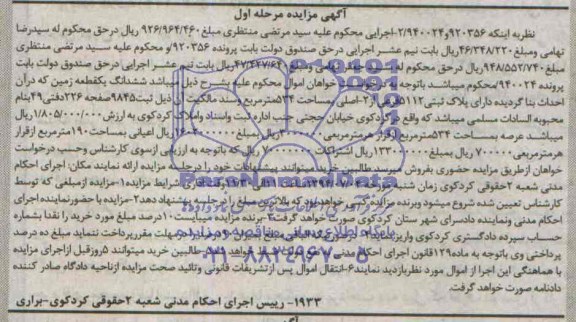 آگهی مزایده مرحله اول
نظربه اینکه ۹۲۰۳۵۶و۲/۹۴۰۰۲۴-اجرایی محکوم علیه سید مرتضی منتظری مبلغ ۹۲۶/۹۶۴/۴۶۰ ریال درحق محکوم له سیدرضا
تهامی ومبلغ۴۶/۳۴۸/۲۲۰ریال بابت نیم عشر اجرایی درحق صندوق دولت بابت پرونده ۹۲۰۳۵۶و محکوم علیه سید مرتضی منتظری
مبلغ۹۴۸/۵۵۲/۷۴۰ریال درحق محکوم له تهامی ومبلغ ۴۷/۴۲۷/۶۴۰ریال بابت نیم عشر اجرایی درحق صندوق دولت بابت
پرونده ۹۴۰۰۲۴محکوم میباشد باتوجه به درخواست خواهان اموال محکوم علیه بشرح ذیل میباشد ششدانگ یکقطعه زمین که درآن
احداث بنا گردیده دارای پلاک ثبتی۵۱۱۲فرعی از۲-اصلی مساحت ۵۳۴مترمربع وسند مالکیت آن ذیل ثبت۹۸۴۵صفحه ۲۲۶دفتر۴۹بنام
محبوبه السادات مسلمی میباشد که واقع در کردکوی خیابان حجتی جنب اداره ثبت واسناد واملاک کردکوی به ارزش۱/۸۰۵/۰۰۰/۰۰۰ریال
میباشد عرصه بمساحت ۵۳۴مترمربع ازقرار هرمترمربعی ریال بمبلغ ریال اعیانی بمساحت۱۹۰مترمربع ازقرار
هرمترمربعی۷۰۰۰۰۰ ریال بمبلغ۱۳۳۰۰۰۰۰۰ریال اشتراکات ریال که باتوجه به ارزیابی ازسوی کارشناس وحسب درخواست
خواهان ازطریق مزایده حضوری بفروش میرسد طالبین خرید میتوانند پیشنهادات خود را درجلسه مزایده ارائه نمایند مکان: اجرای احکام
مدنی شعبه ۲حقوقی کردکوی زمان شنبه مورخه شرایط مزایده۱-مزایده ازمبلغی که توسط
کارشناس تعیین شده شروع میشود وبرنده مزایده کسی خواهد بود که بالاترین مبلغ را درجلسه پیشنهاد دهد۲-مزایده باحضورنماینده اجرای
احکام مدنی ونماینده دادسرای شهر ستان کردکوی صورت خواهد گرفت۳-برنده مزایده میبایست۱۰درصد مبلغ مورد خرید را نقدا بشماره
حساب سپرده دادگستری کردکوی واریزنماید مهلت مقررپرداخت ننماید مبلغ ده درصد
پرداختی وی باتوجه به ماده۱۲۹قانون اجرای احکام مدنی خواهد شد طالبین خرید میتوانند ۵روزقبل ازاجرای مزایده
با هماهنگی این اجرا از اموال مورد نظربازدید نمایند۶-انتقال اموال پس ازتشریفات قانونی وتائید صحت مزایده ازناحیه دادگاه صادر کننده
دادنامه صورت خواهد گرفت.
۱۹۳۳- رییس اجرای احکام مدنی شعبه ۲حقوقی کردکوی-براری
۰۲۱-۸۸۳۴۹۶۷۰-۵